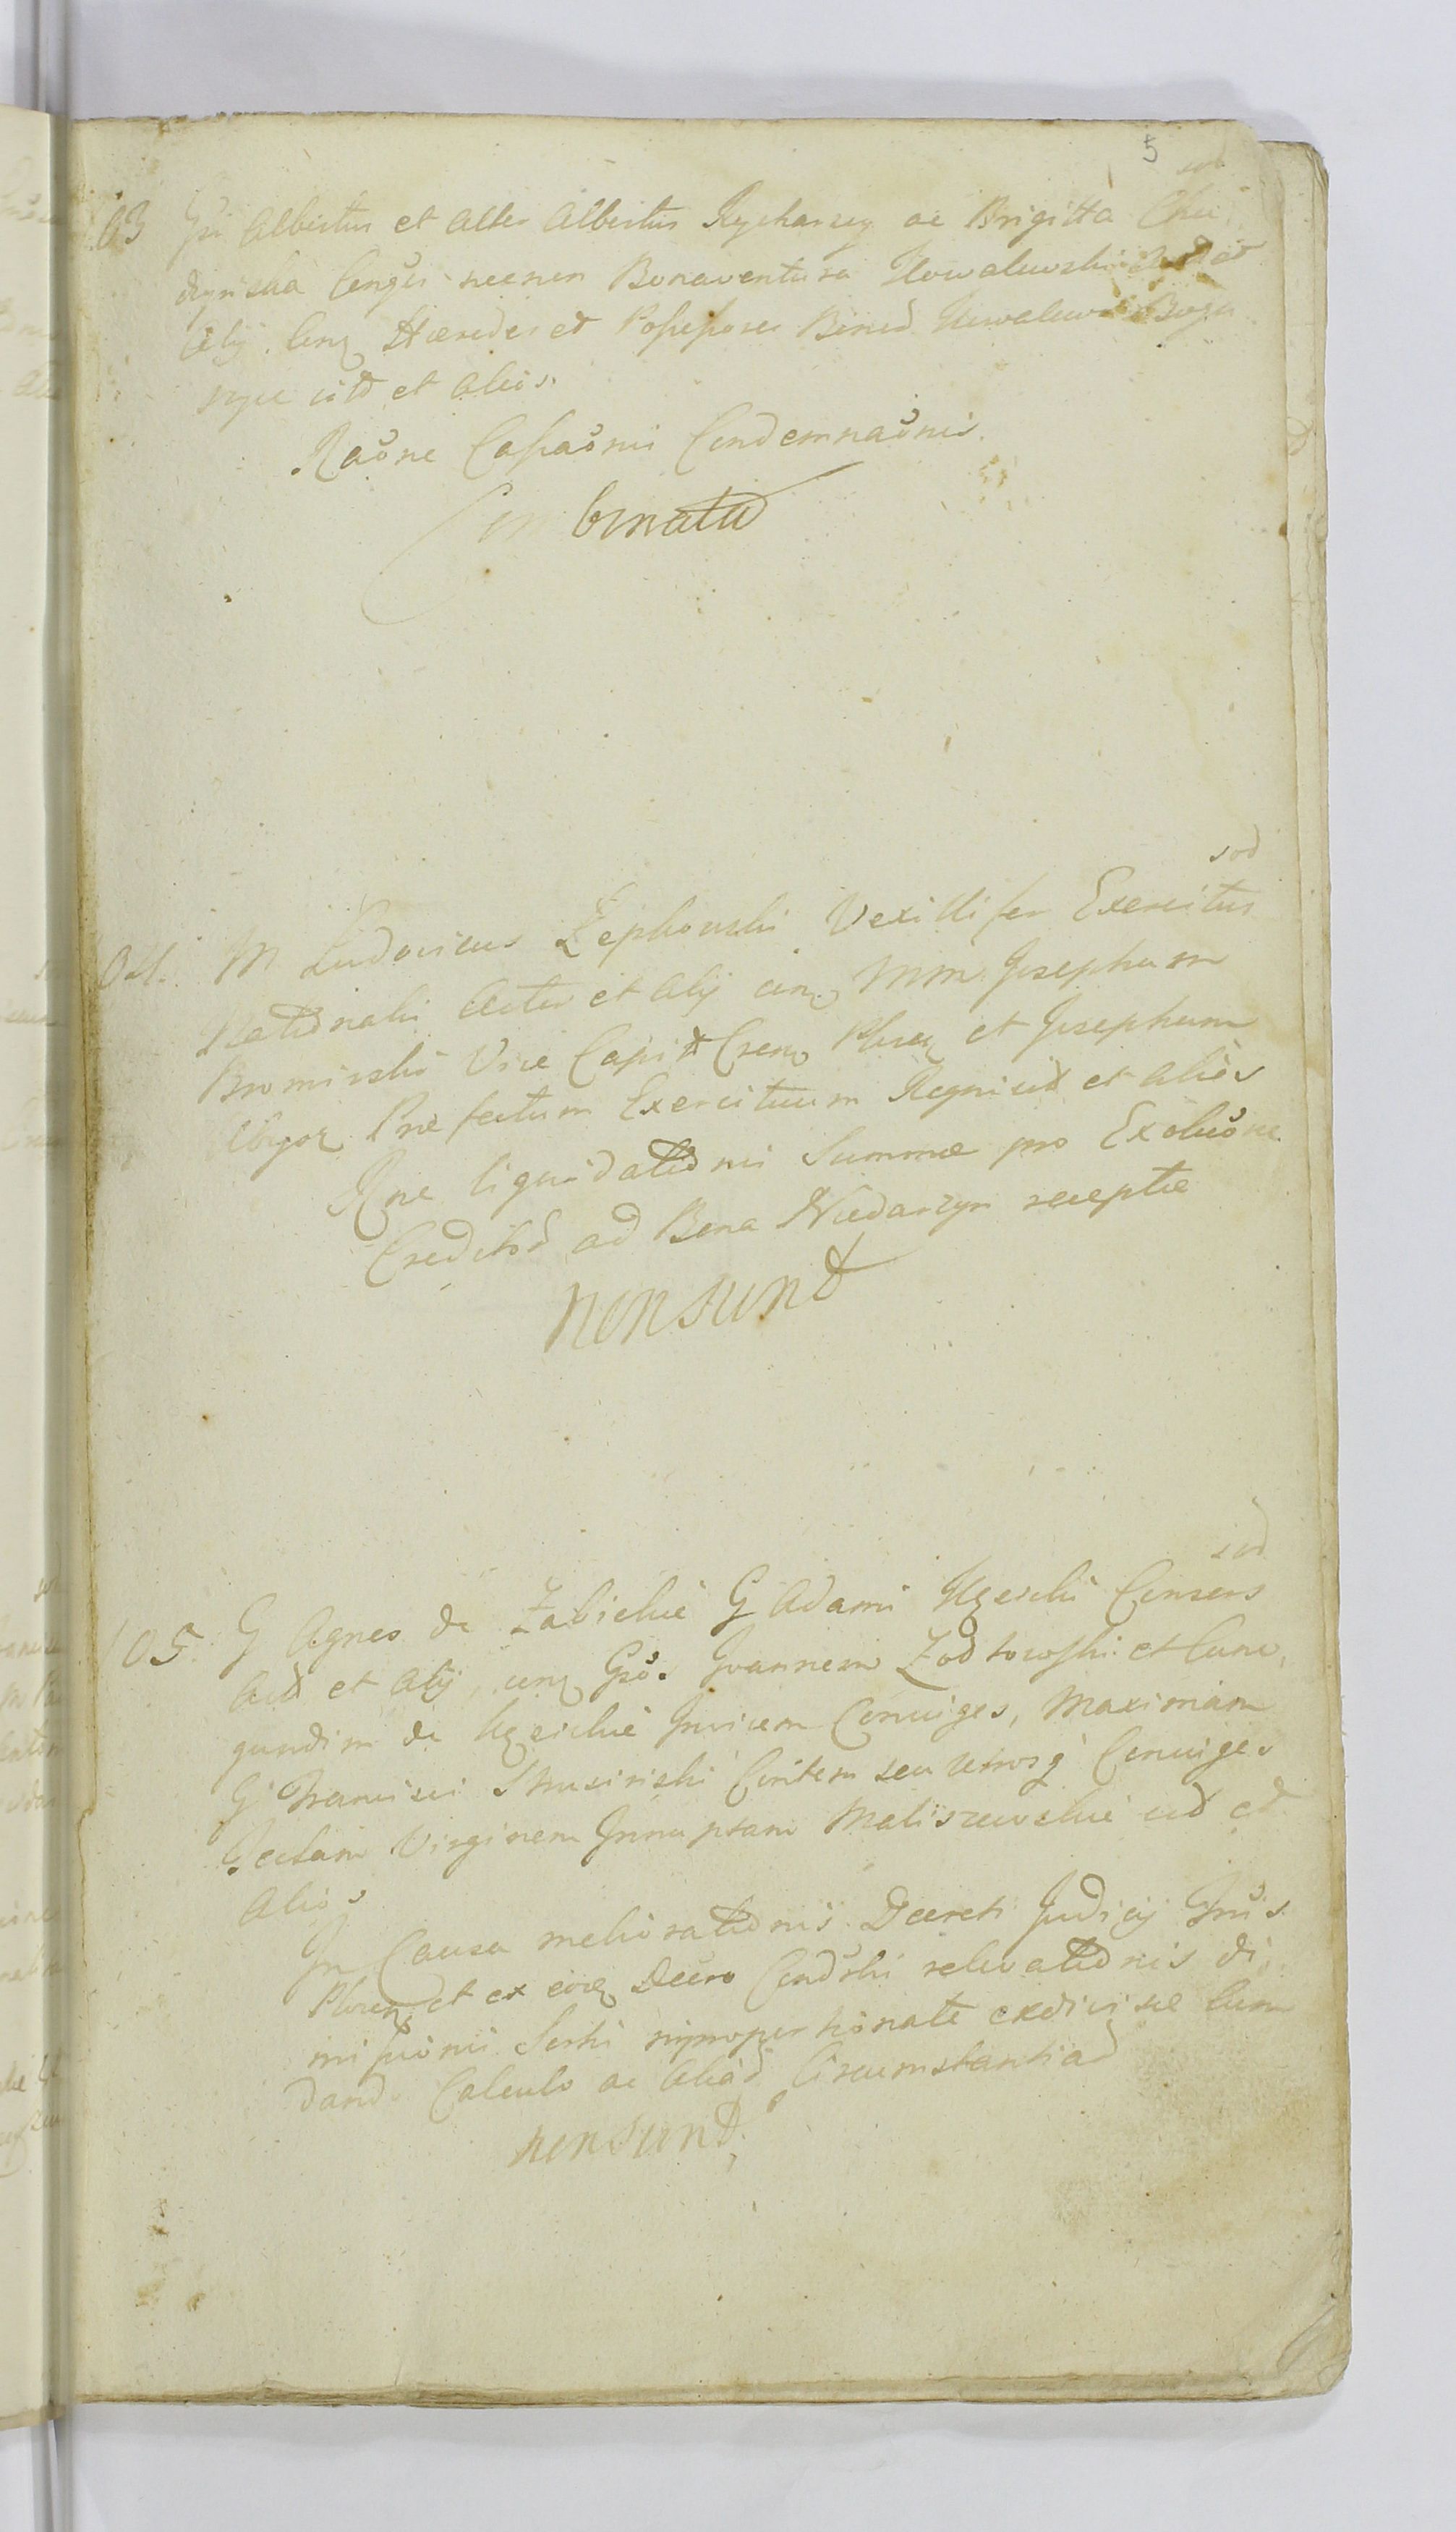 5
sod
63 Gsi Albertus et alter Albertus Rycharscy ac Brigitta Chu
dzynska Conges necnon Bonaventura Kowalewski
Alij. Conq Hæredes et Possessores Bonod Kowalewo Bogu
szyce citd et alios.
Raone Cassaonis Condemnaonis.
Combinatd
sod
04. M Ludovicus Zephowski Vexillifer Exercitus
Natidnalis Actor et alij cinq Mm Josephum
Bromirski Vice Capit Cren Plocen et Josephum
Præfectum Exercituum Regni citd et alios
Rne liquidatidnis Summæ pro Exoluone
Creditod ad Bona Niedarzyn receptæ
non sund
sod
105. G Agnes de Zabickie G Adami Consors
Actd et alij, conq Gsos Joannem Zodtowski et Cune,
gundim de Invicem Conuiges, Mariniam
G Francisci Contem seu utrosq Conuiges
Teclam Virginem Innuptam Maliszewskie citd et
alios
In Causa melioratidnis Decreti Judicij Grus
Plocen et ex eoq Decro Condski relevatidnis di,
missionis Sortis improportionate exdivisæ Cum
dand Calculo ac aliad Circumstantiad
non sund;